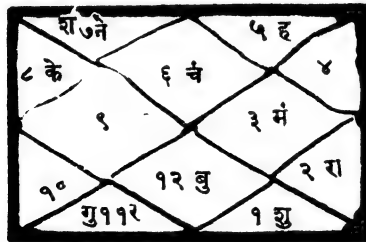 श ७ ने ५ ह
८ के ६ चं ४
९ ३ मं
१० १२ बु २ रा
गु ११ र १ शु